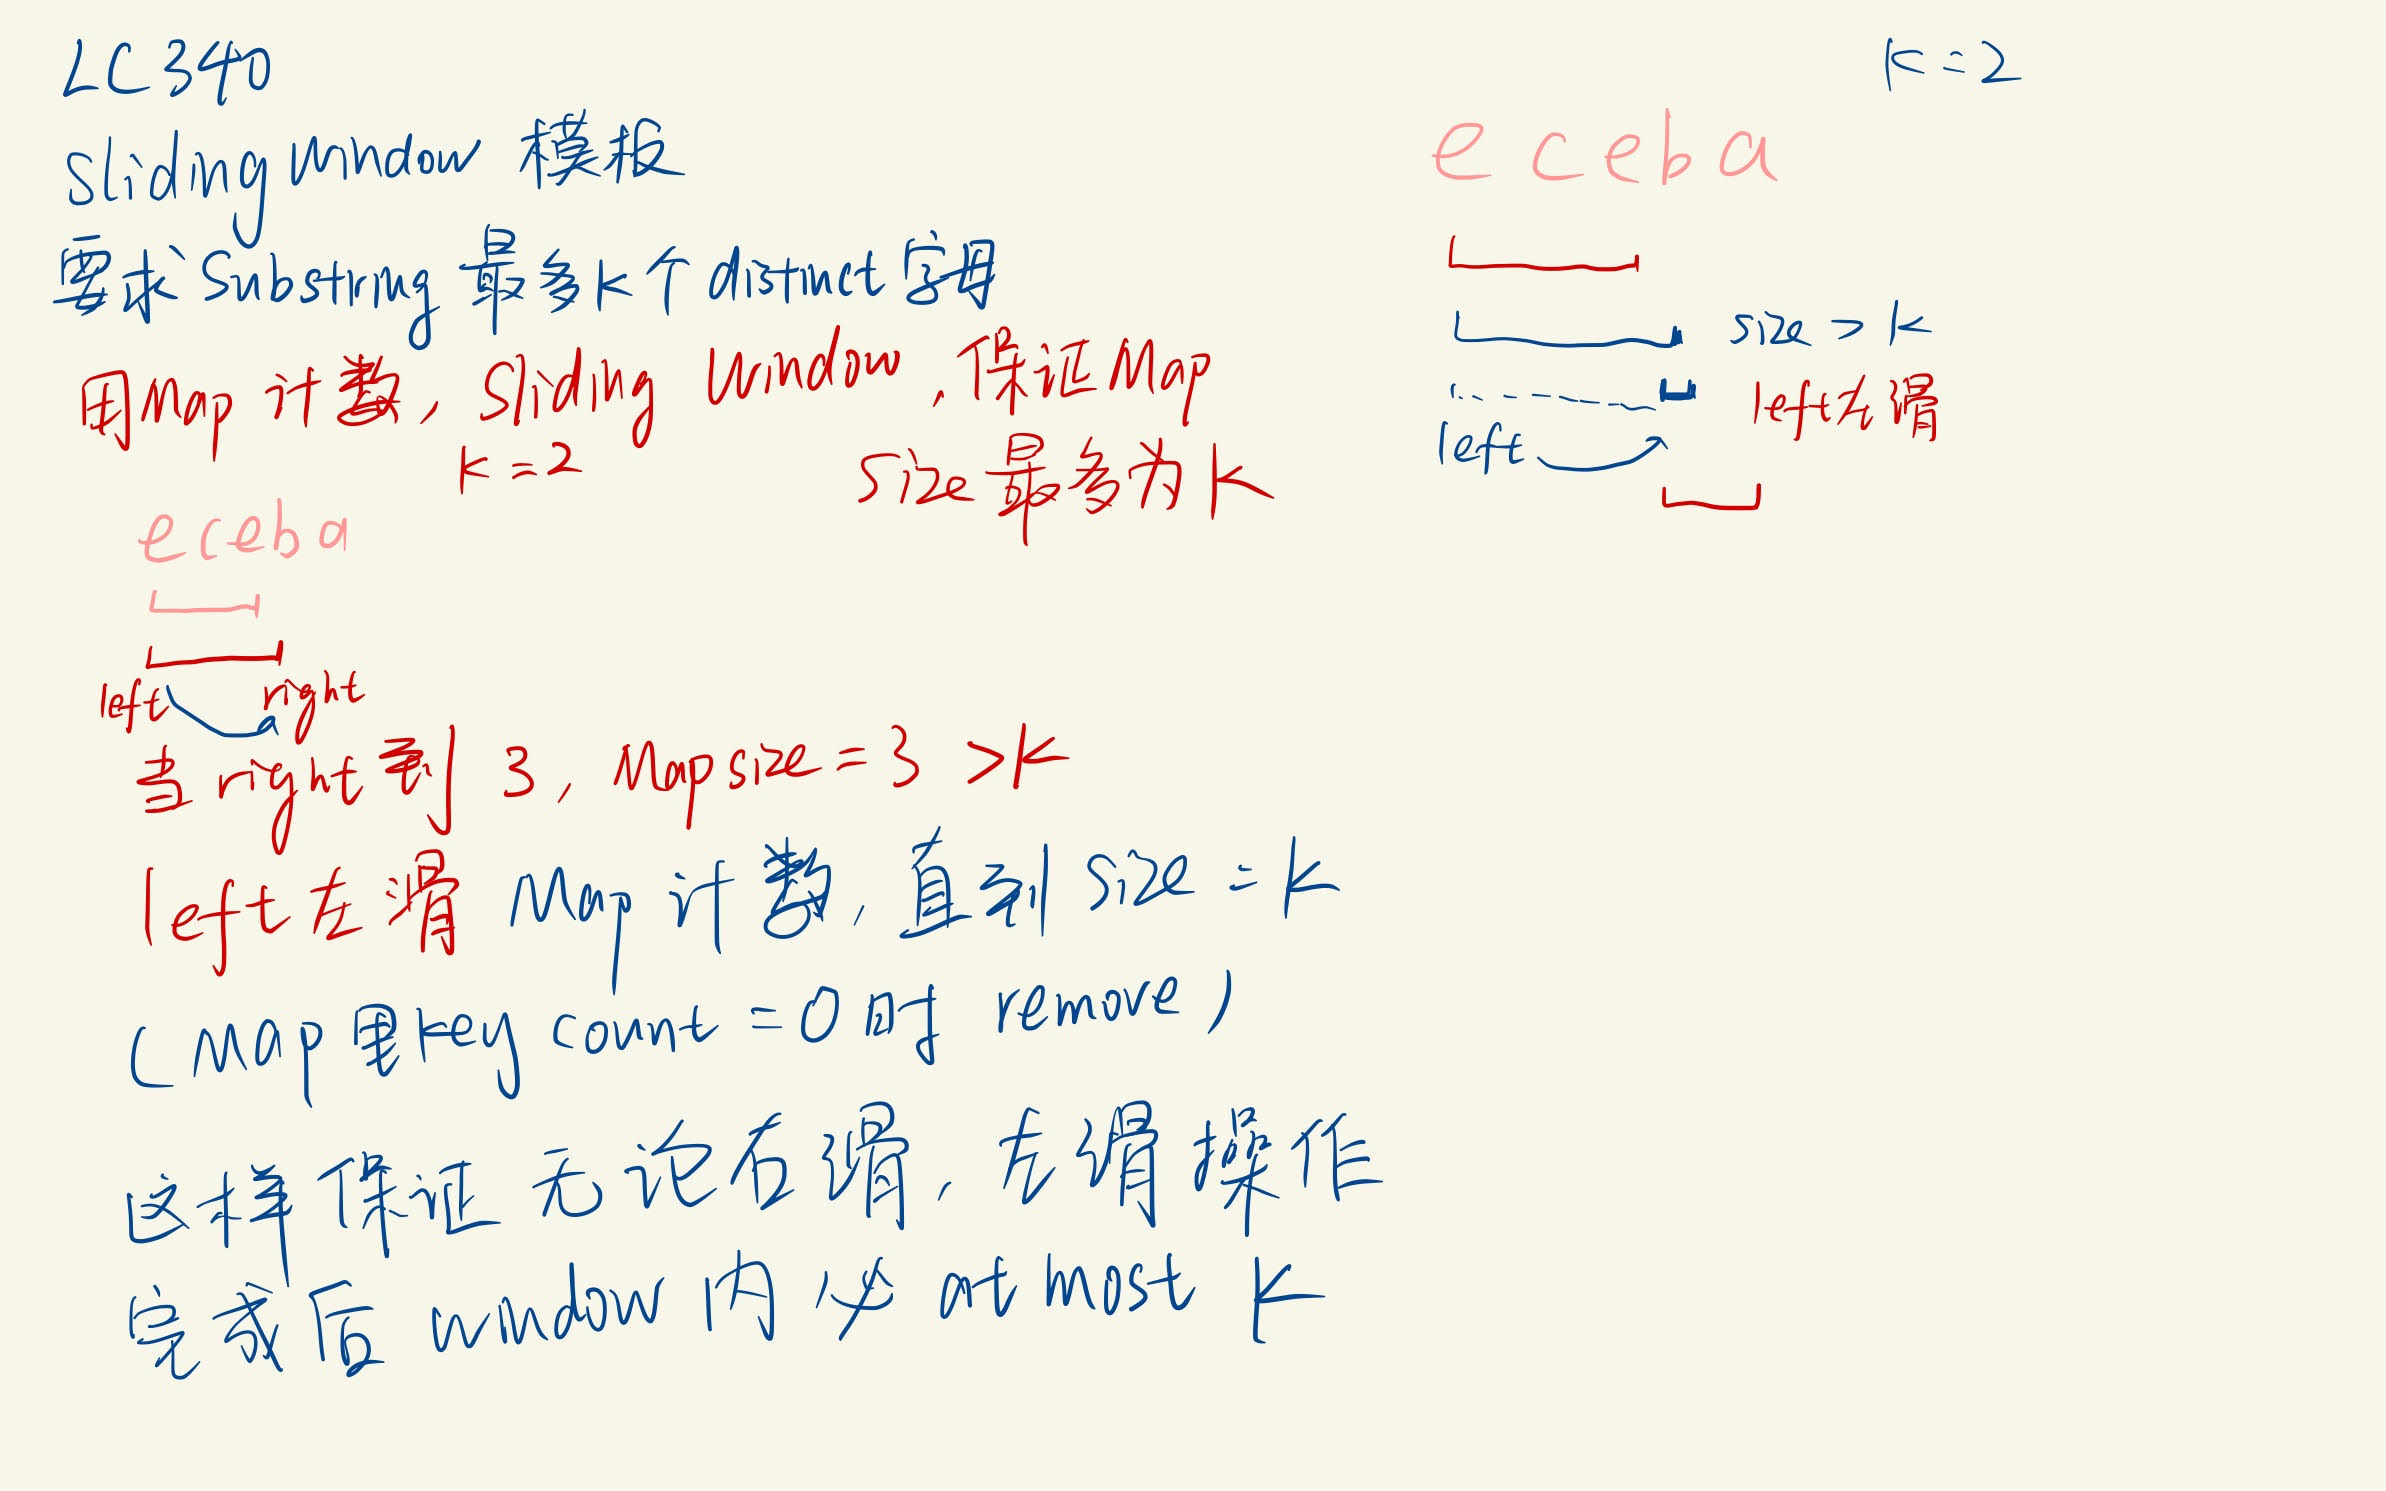 LC340
Sliding window 模板
要求 Substring 最多 k 个 distinct 字母
用 Map 计数, Sliding Window, 保证 Map
size 最多为 K
k = 2
eceba
left right
a
当 right 到 3, Map size = 3 > k
left 左滑 Map 计数, 直到 size = k
(Map 里 key count = 0 时 remove)
这样保证 无论右滑, 左滑操作
完成后 window 内必 at most k
k = 2
eceba
size > k
left 左滑
left